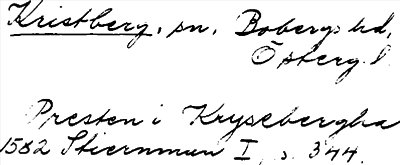 Kristberg, sn, Bobergs hd,
Östergl.
Presten i Krysebergha
1582 Stiernman I, s. 344.